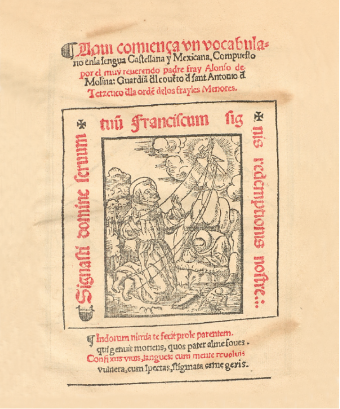 ¶Aqui comiença vn vocabula-
rio enla lengua Castellana y Mexicana, Compuesto
por el muy reuerendo padre fray Alonso de
Molina: Guardiã dl cõuẽto d sant Antonio d
Tetzcuco dla ordẽ delos frayles Menores.
Signasti domine seruum
tuũ Franciscum sig
nis redemptionis nostre...
¶Indorum nimia te fecit prole parentem.
qui genuit moriens, quos pater alme foues.
Confixus viuis, langues: cum mente reuoluis
vulnera, cum spectas, stigmata carne geris.